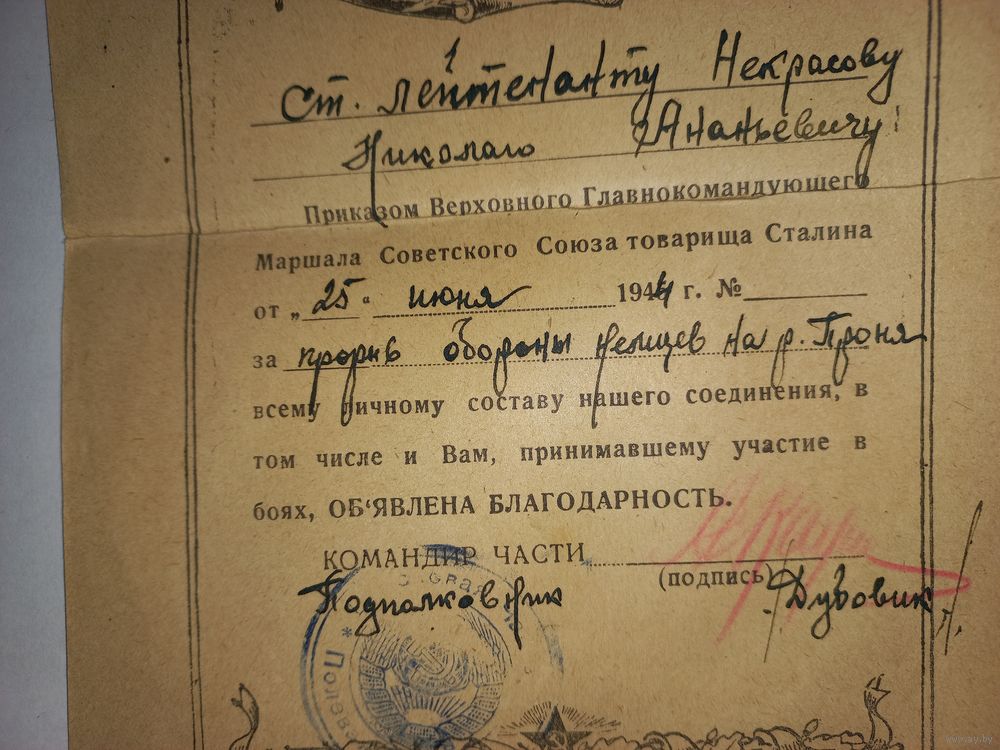 Ст. лейтенанту Некрасову
Николаю Ананьевичу
Приказом Верховного Главнокомандующего
Маршала Советского Союза товарища Сталина
от „25“ июня 1944 г. №
за прорыв обороны немцев на р. Проня
всему личному составу нашего соединения, в
том числе и Вам, принимавшему участие в
боях, ОБ‘ЯВЛЕНА БЛАГОДАРНОСТЬ.
КОМАНДИР ЧАСТИ
(подпись)
Подполковник /Дубовик/
www.ay.by